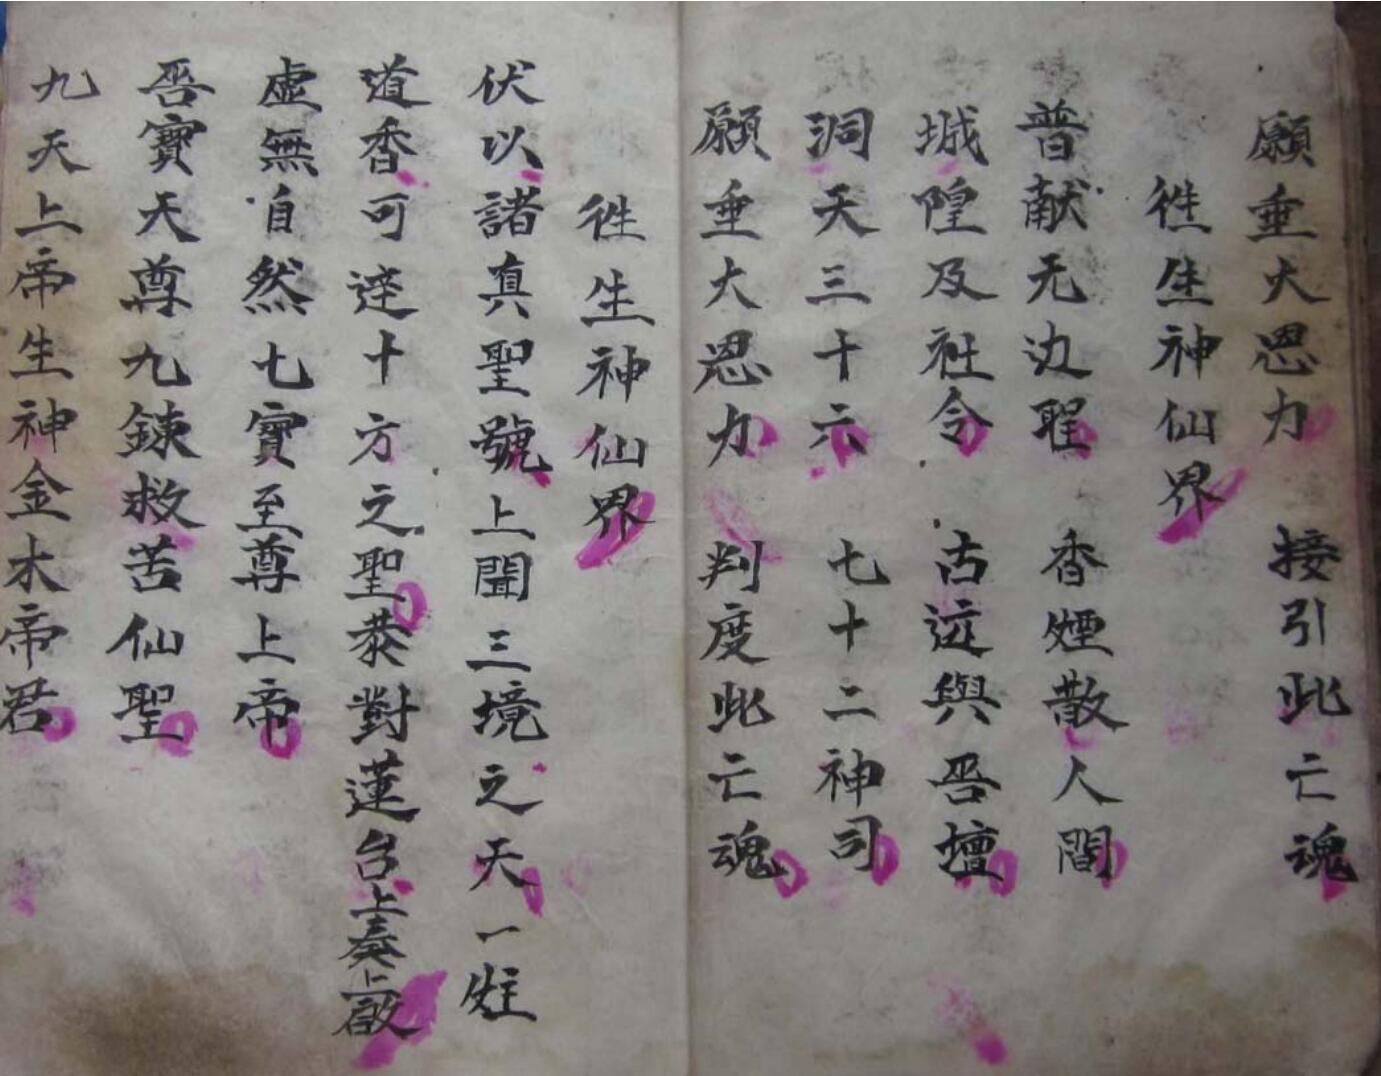 願垂大恩力 接引此亡魂
徃生神仙界
普献无边聖 香煙散人間
城隍及社令 古迯與吾壇
洞天三十六 七十二神司
願垂大恩力 判度此亡魂
徃生神仙界
伏以諸真聖號上聞三境之天一炷
道香可達十方之聖恭對蓮台上奏上啟
虛無自然七寶至尊上帝
吾寶天尊九鍊救苦仙聖
九天上帝生神金木帝君